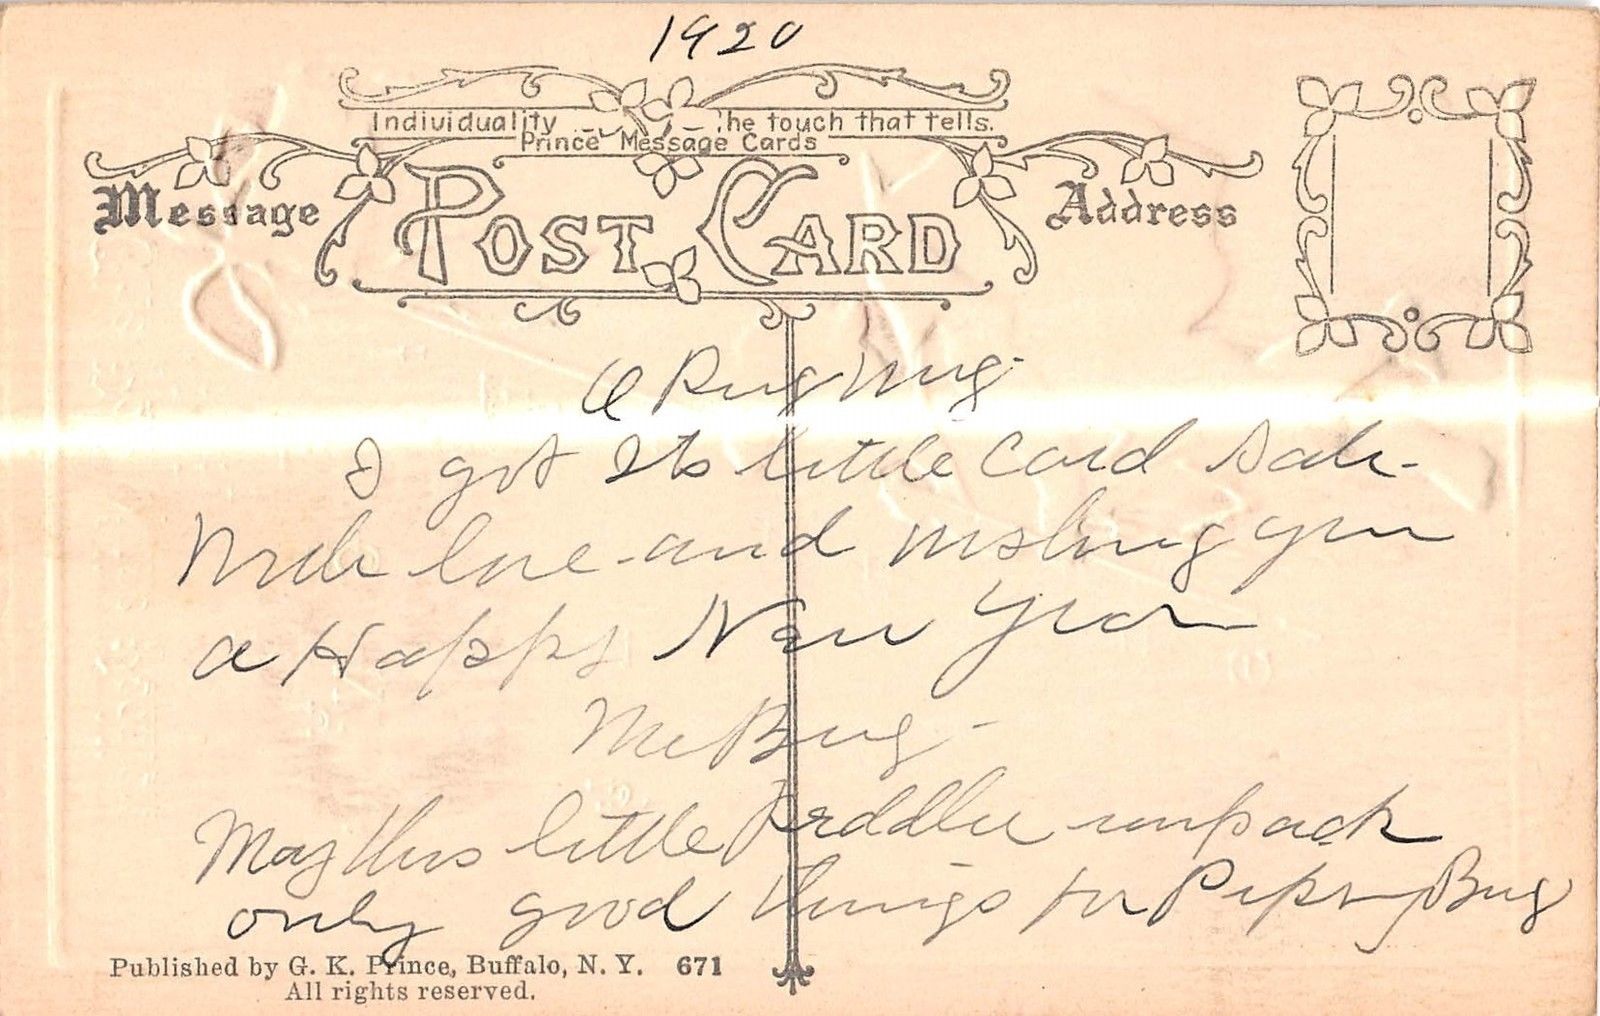 1920
Individuality The touch that tells.
Prince Message Cards
Message POST CARD Address
I got Its little Card Safe-
With love and wishing you
a Happy New Year
McBug-
May this little Peddler unpack
only good things for Bug
Published by G. K. Prince, Buffalo, N. Y. 671
All rights reserved.